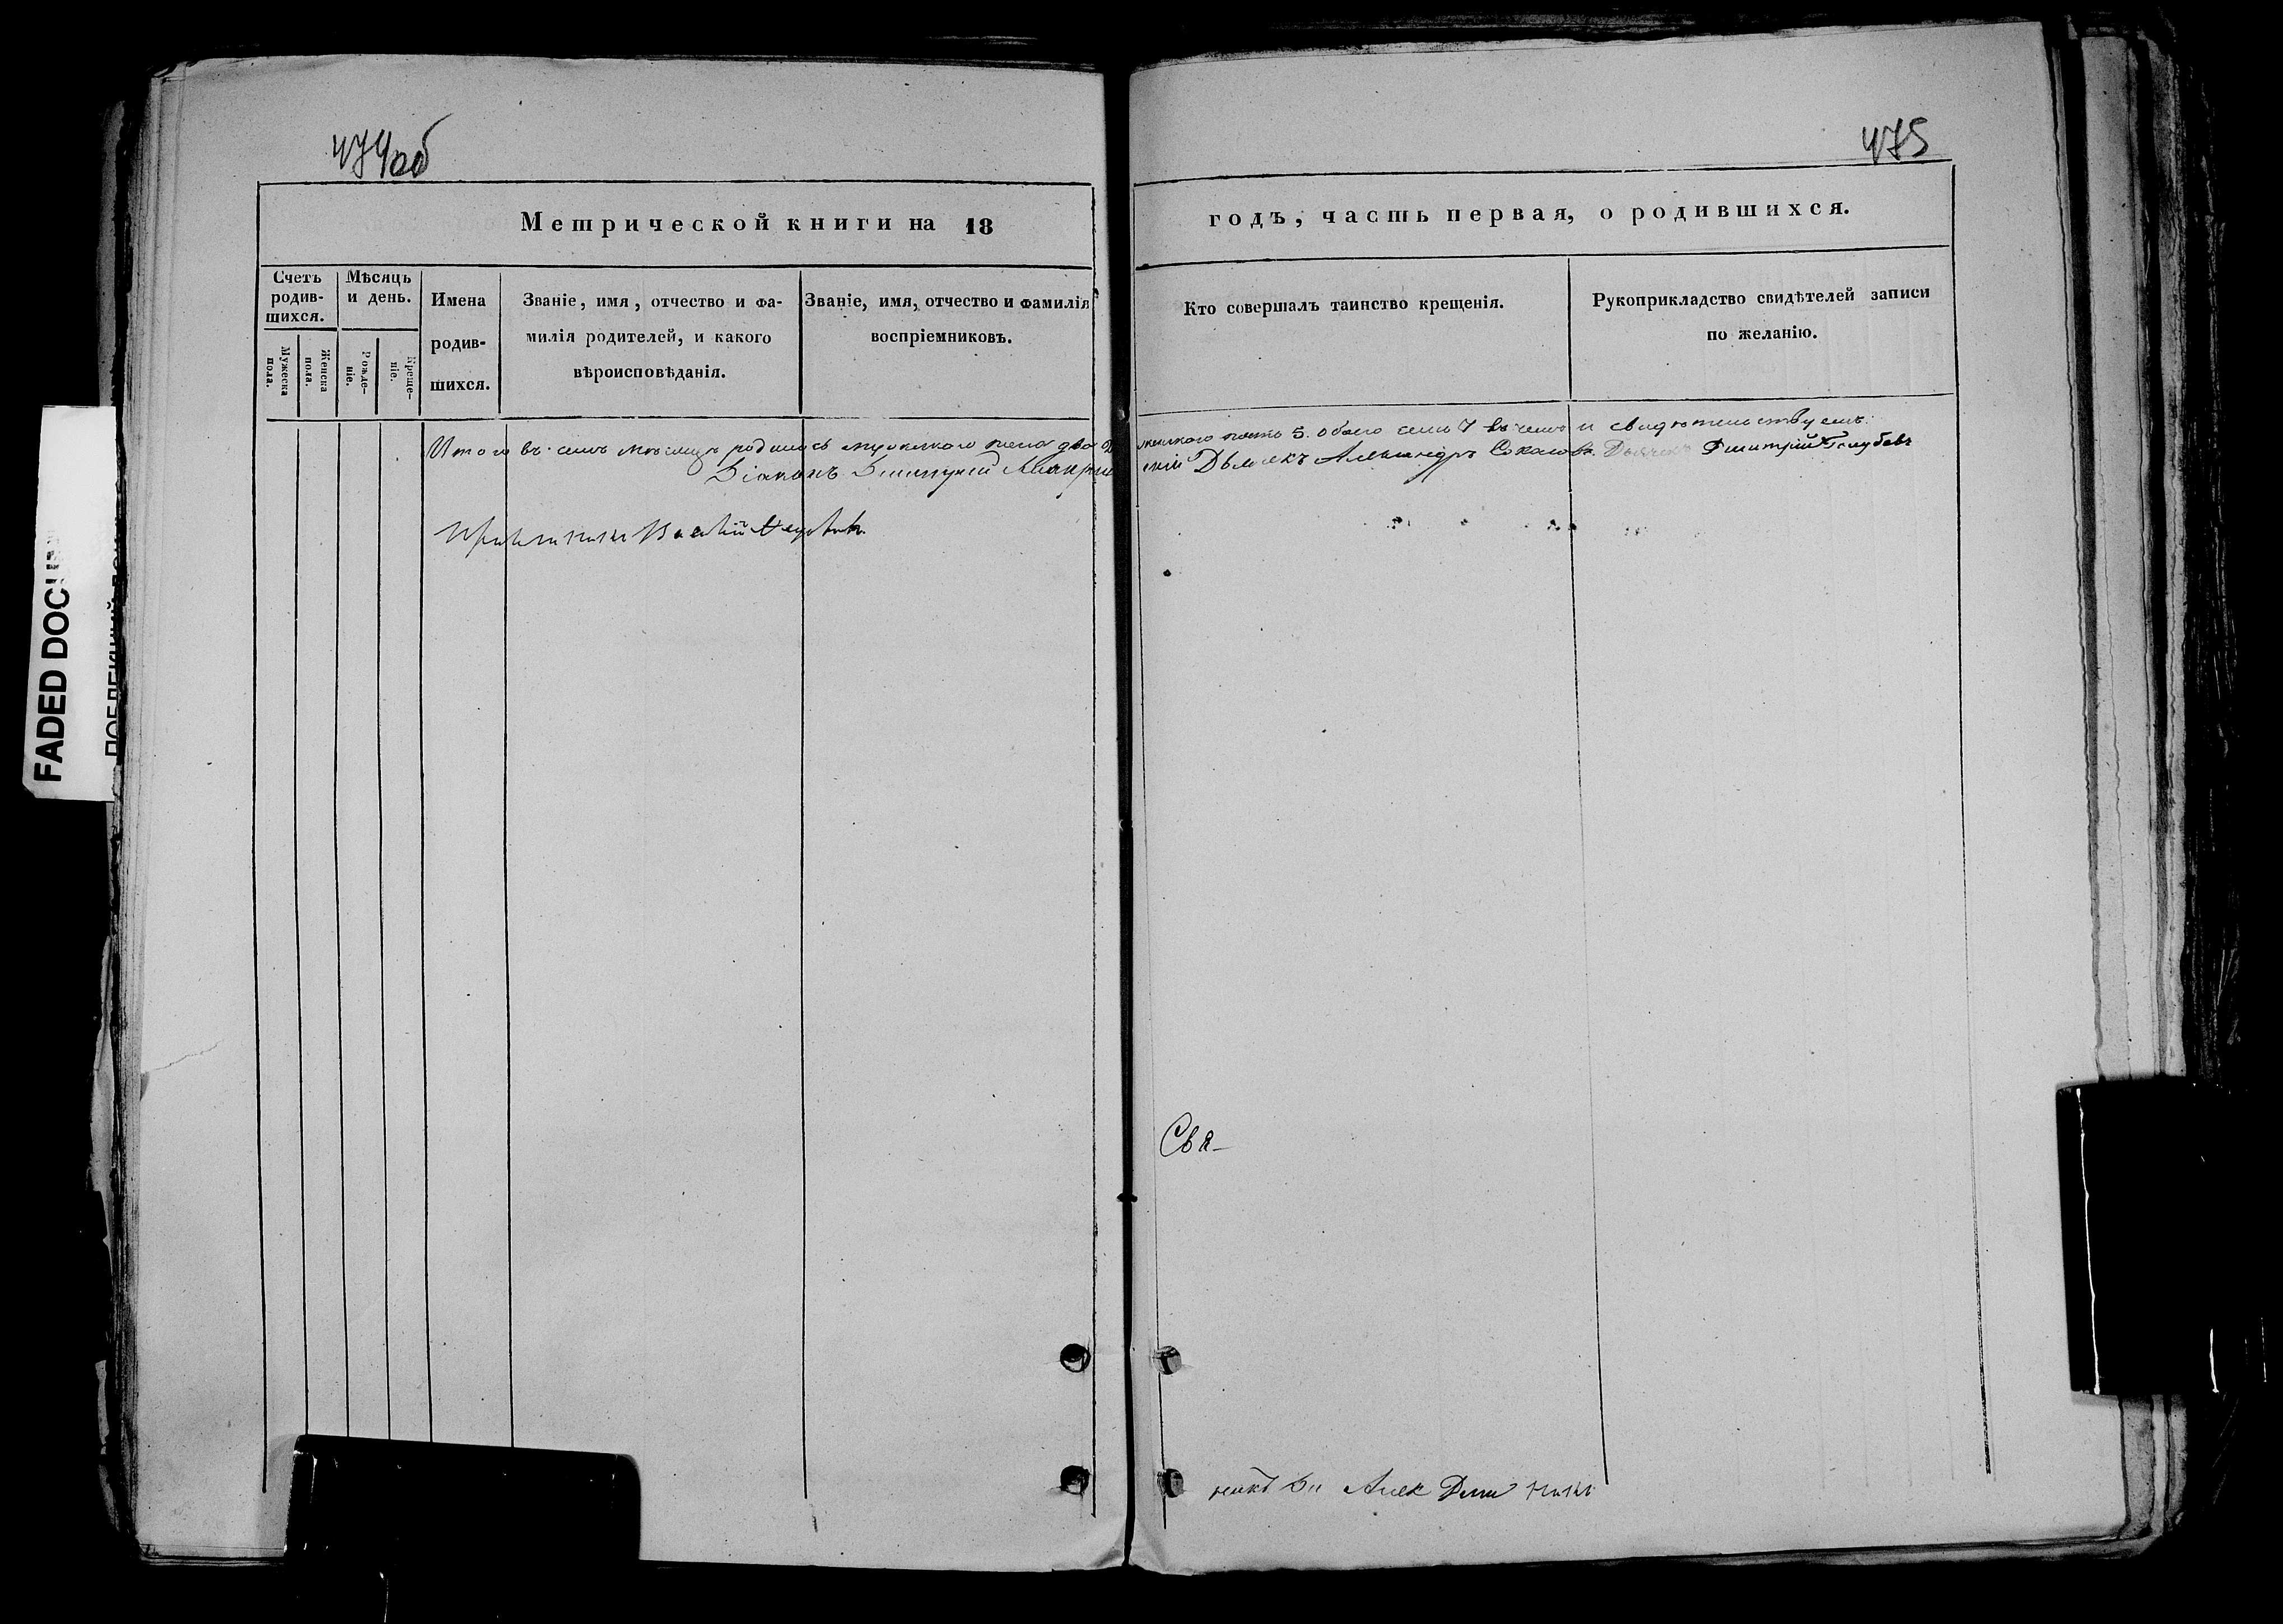 474об
475
Метрической книги на 18
годъ, часть первая, о родившихся.
Счетъ родив-шихся.
Мужеска пола.
Женска пола.
Мѣсяцъ и день.
Рожде-ніе.
Креще-ніе.
Имена
родив-
шихся.
Званіе, имя, отчество и фа-
милія родителей, и какого
вѣроисповѣданія.
Званіе, имя, отчество и фамилія
воспріемниковъ.
Кто совершалъ таинство крещенія.
Рукоприкладство свидѣтелей записи
по желанію.
Итого въ семъ мѣсяцѣ родилось мужескаго пола два женскаго 5. обоего 7 въ чемъ и свидѣтельствуемъ:
Діаконъ Димитрій Дьячекъ Александръ Соколовъ. Дьячекъ Дмитрій Голубевъ
Свя-
Алек Дми
FADED DOCU